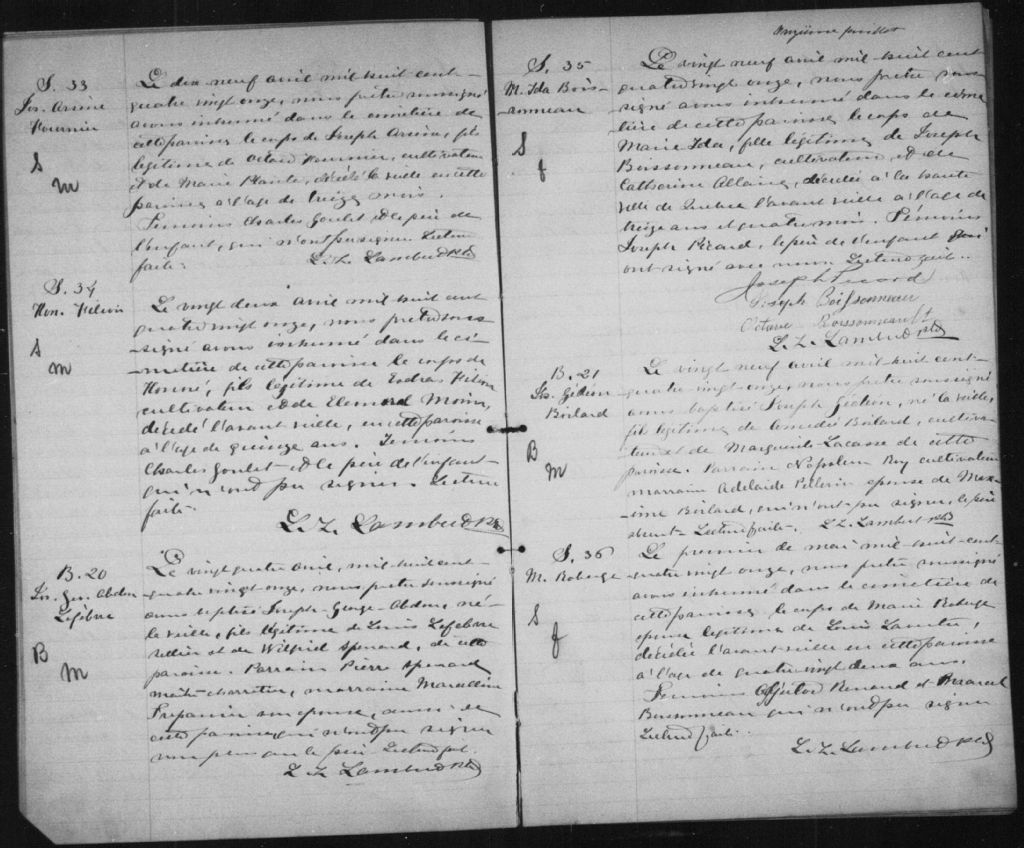 S. 33
Jos. Arsène
Fournier
S
M
Le dix neuf avril mil huit cent-
quatre vingt onze, nous prêtre soussigné
avons inhumé dans le cimetière de
cette paroisse le corps de Joseph Arsène, fils
légitime de Octave Fournier, cultivateur
et de Marie Plante, décédé la veille en cette
paroisse à l'age de treize mois.
Temoins Charles Goulet et le père de
l'enfant, qui n'ont pu signer Lecture
faite.
L. Z. Lambert Ptre
S. 34
Hon.
S
M
Le vingt deux avril mil huit cent
quatre vingt onze, nous prêtre sous
-signé avons inhumé dans le ci-
-metière de cette paroisse le corps de
Honoré, fils légitime de
cultivateur et de Morin,
décédé l'avant veille, en cette paroisse
à l'age de quinze ans. Temoins
Charles Goulet et le père de l'enfant
qui n'ont pu signer Lecture
faite.
L. Z. Lambert Ptre
B. 20
Jos. Geo. Abdon
Lefebvre
B
M
Le vingt quatre avril, mil huit cent-
quatre vingt onze, nous prêtre soussigné
avons baptisé Joseph-George-Abdon, né
la veille, fils légitime de Louis Lefebvre
sellier et de Wilfrid Spenard, de cette
paroisse. Parrain Pierre Spenard
maître charretier, marraine
son épouse, aussi de
cette paroisse qui n'ont pu signer
non plus que le père Lecture faite.
L. Z. Lambert Ptre
Onzième feuillet
S. 35
M. Ida Bois-
-sonneau
S
f
Le vingt neuf avril mil huit cent
quatre vingt onze, nous prêtre sous
signé avons inhumé dans le cime
tière de cette paroisse le corps de
Marie Ida, fille légitime de Joseph
Boissonneau, cultivateur et de
Catherine Allaire, décédée à la haute
ville de Québec l'avant veille à l'age de
treize ans et quatre mois. Témoins
Joseph Picard, le père de l'enfant qui
ont signé avec nous Lecture faite.
Joseph Picard
Joseph Boissonneau
Octave Boissonneault
L. Z. Lambert Ptre
B. 21
Jos. Gédéon
Boilard
B
M
Le vingt neuf avril mil huit cent-
quatre vingt onze, nous prêtre soussigné
avons baptisé Joseph Gédéon, né la veille,
fils légitime de Boilard, cultiva-
teur et de Marguerite Lacasse de cette
paroisse. Parrain Napoléon Roy cultivateur
marraine Adelaide Pelerin épouse de Max-
ime Boilard, qui n'ont pu signer, le père
absent. Lecture faite. L. Z. Lambert Ptre
S. 36
M. Roberge
S
f
Le premier de mai mil-huit-cent-
quatre vingt onze, nous prêtre soussigné
avons inhumé dans le cimetière de
cette paroisse le corps de Marie Roberge
épouse légitime de Louis
décédée l'avant-veille en cette paroisse
à l'age de quatre vingt deux ans.
Temoins et
Boissonneau qui n'ont pu signer
Lecture faite.
L. Z. Lambert Ptre